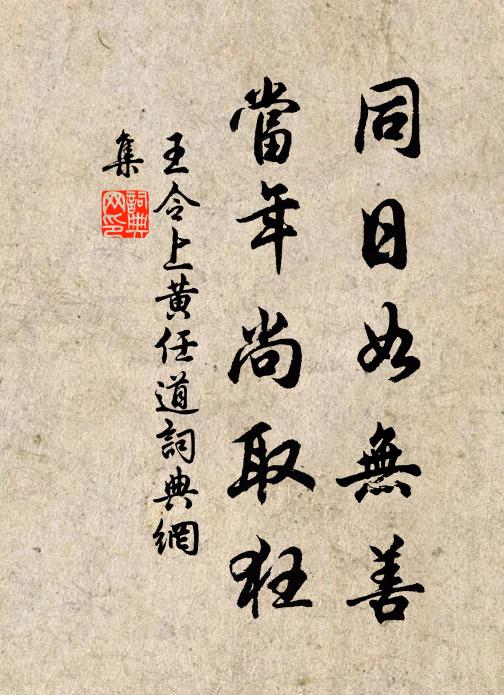 同日如無善
當年尚取狂
王令上黃任道詞典網
集
詞典
网印